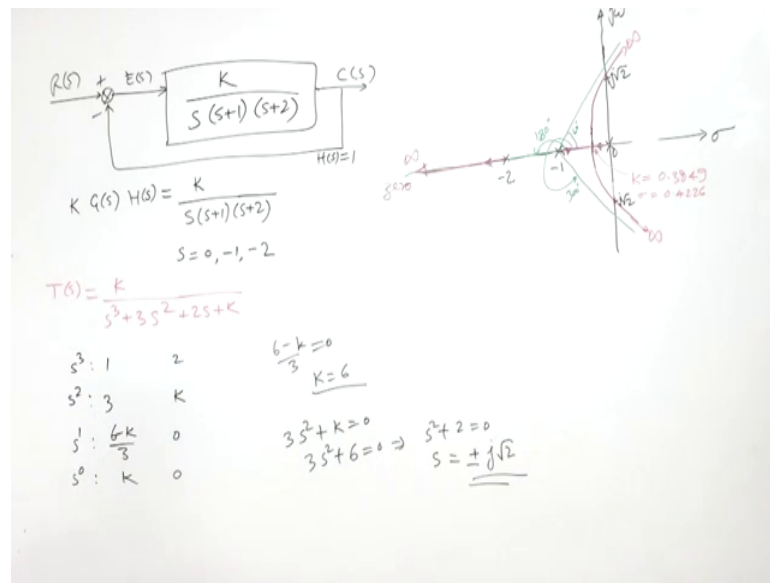 R(S) + E(S) K / S(S+1)(S+2) C(S)
-
H(S)=1
K G(S) H(S) = K / S(S+1)(S+2)
S = 0, -1, -2
T(S) = K / S³+3S²+2S+K
S³: 1 2
S²: 3 K
S¹: 6-K/3 0
S⁰: K 0
6-K/3 = 0
K = 6
3S²+K=0
3S²+6=0 ⇒ S²+2=0
S = ± j√2
jω
∞
j√2
180°
∞
zero
-2
-1
0
σ
K = 0.3849
σ = 0.4226
√2
∞